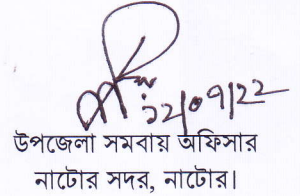 ১২/০৭/২২
উপজেলা সমবায় অফিসার
নাটোর সদর, নাটোর।